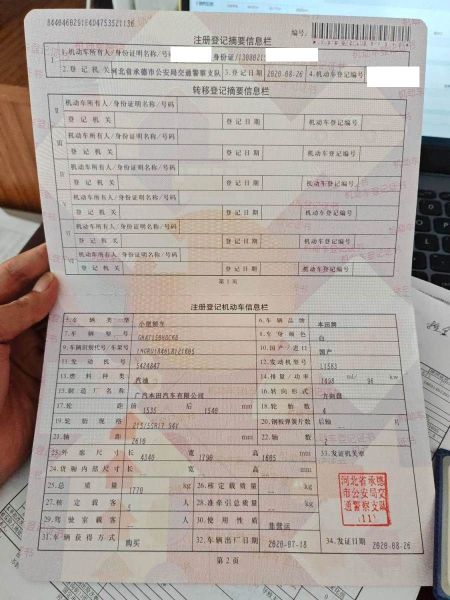 注册登记摘要信息栏
编号:
1.机动车所有人/身份证明名称/号码
2.登记机关 河北省承德市公安局交通警察支队 3.登记日期 2020-08-26 4.机动车登记编号
转移登记摘要信息栏
机动车所有人/身份证明名称/号码
登记机关 登记日期 机动车登记编号
III 机动车所有人/身份证明名称/号码
登记机关 登记日期 机动车登记编号
机动车所有人/身份证明名称/号码
登记机关 登记日期 机动车登记编号
V 机动车所有人/身份证明名称/号码
登记机关 登记日期 机动车登记编号
VI 机动车所有人/身份证明名称/号码
登记机关 登记日期 机动车登记编号
第1页
注册登记机动车信息栏
5.车辆类型 小型轿车 6.车辆品牌 本田牌
7.车辆型号 8.车身颜色 白
9.车辆识别代号/车架号 10.国产/进口 国产
11.发动机号 5424847 12.发动机型号
13.燃料种类 汽油 14.排量/功率 1498 ml 96 kw
15.制造厂名称 广汽本田汽车有限公司 16.转向形式 方向盘
17.轮距 前 1535 后 1540 mm 18.轮胎数 4
19.轮胎规格 215/55R17 94V 20.钢板弹簧片数 后轴 片
21.轴距 2610 mm 22.轴数 2 33.发证机关章
23.外廓尺寸 长 4340 宽 1790 高 1605 mm
24.货厢内部尺寸 长 宽 高 mm
25.总质量 1770 kg 26.核定载质量 kg
27.核定载客 5 人 28.准牵引总质量 kg
29.驾驶室载客 人 30.使用性质 非营运
河北省承德市公安局交通警察支队
31.车辆获得方式 购买 32.车辆出厂日期 2020-07-18 34.发证日期 2020-08-26
第2页